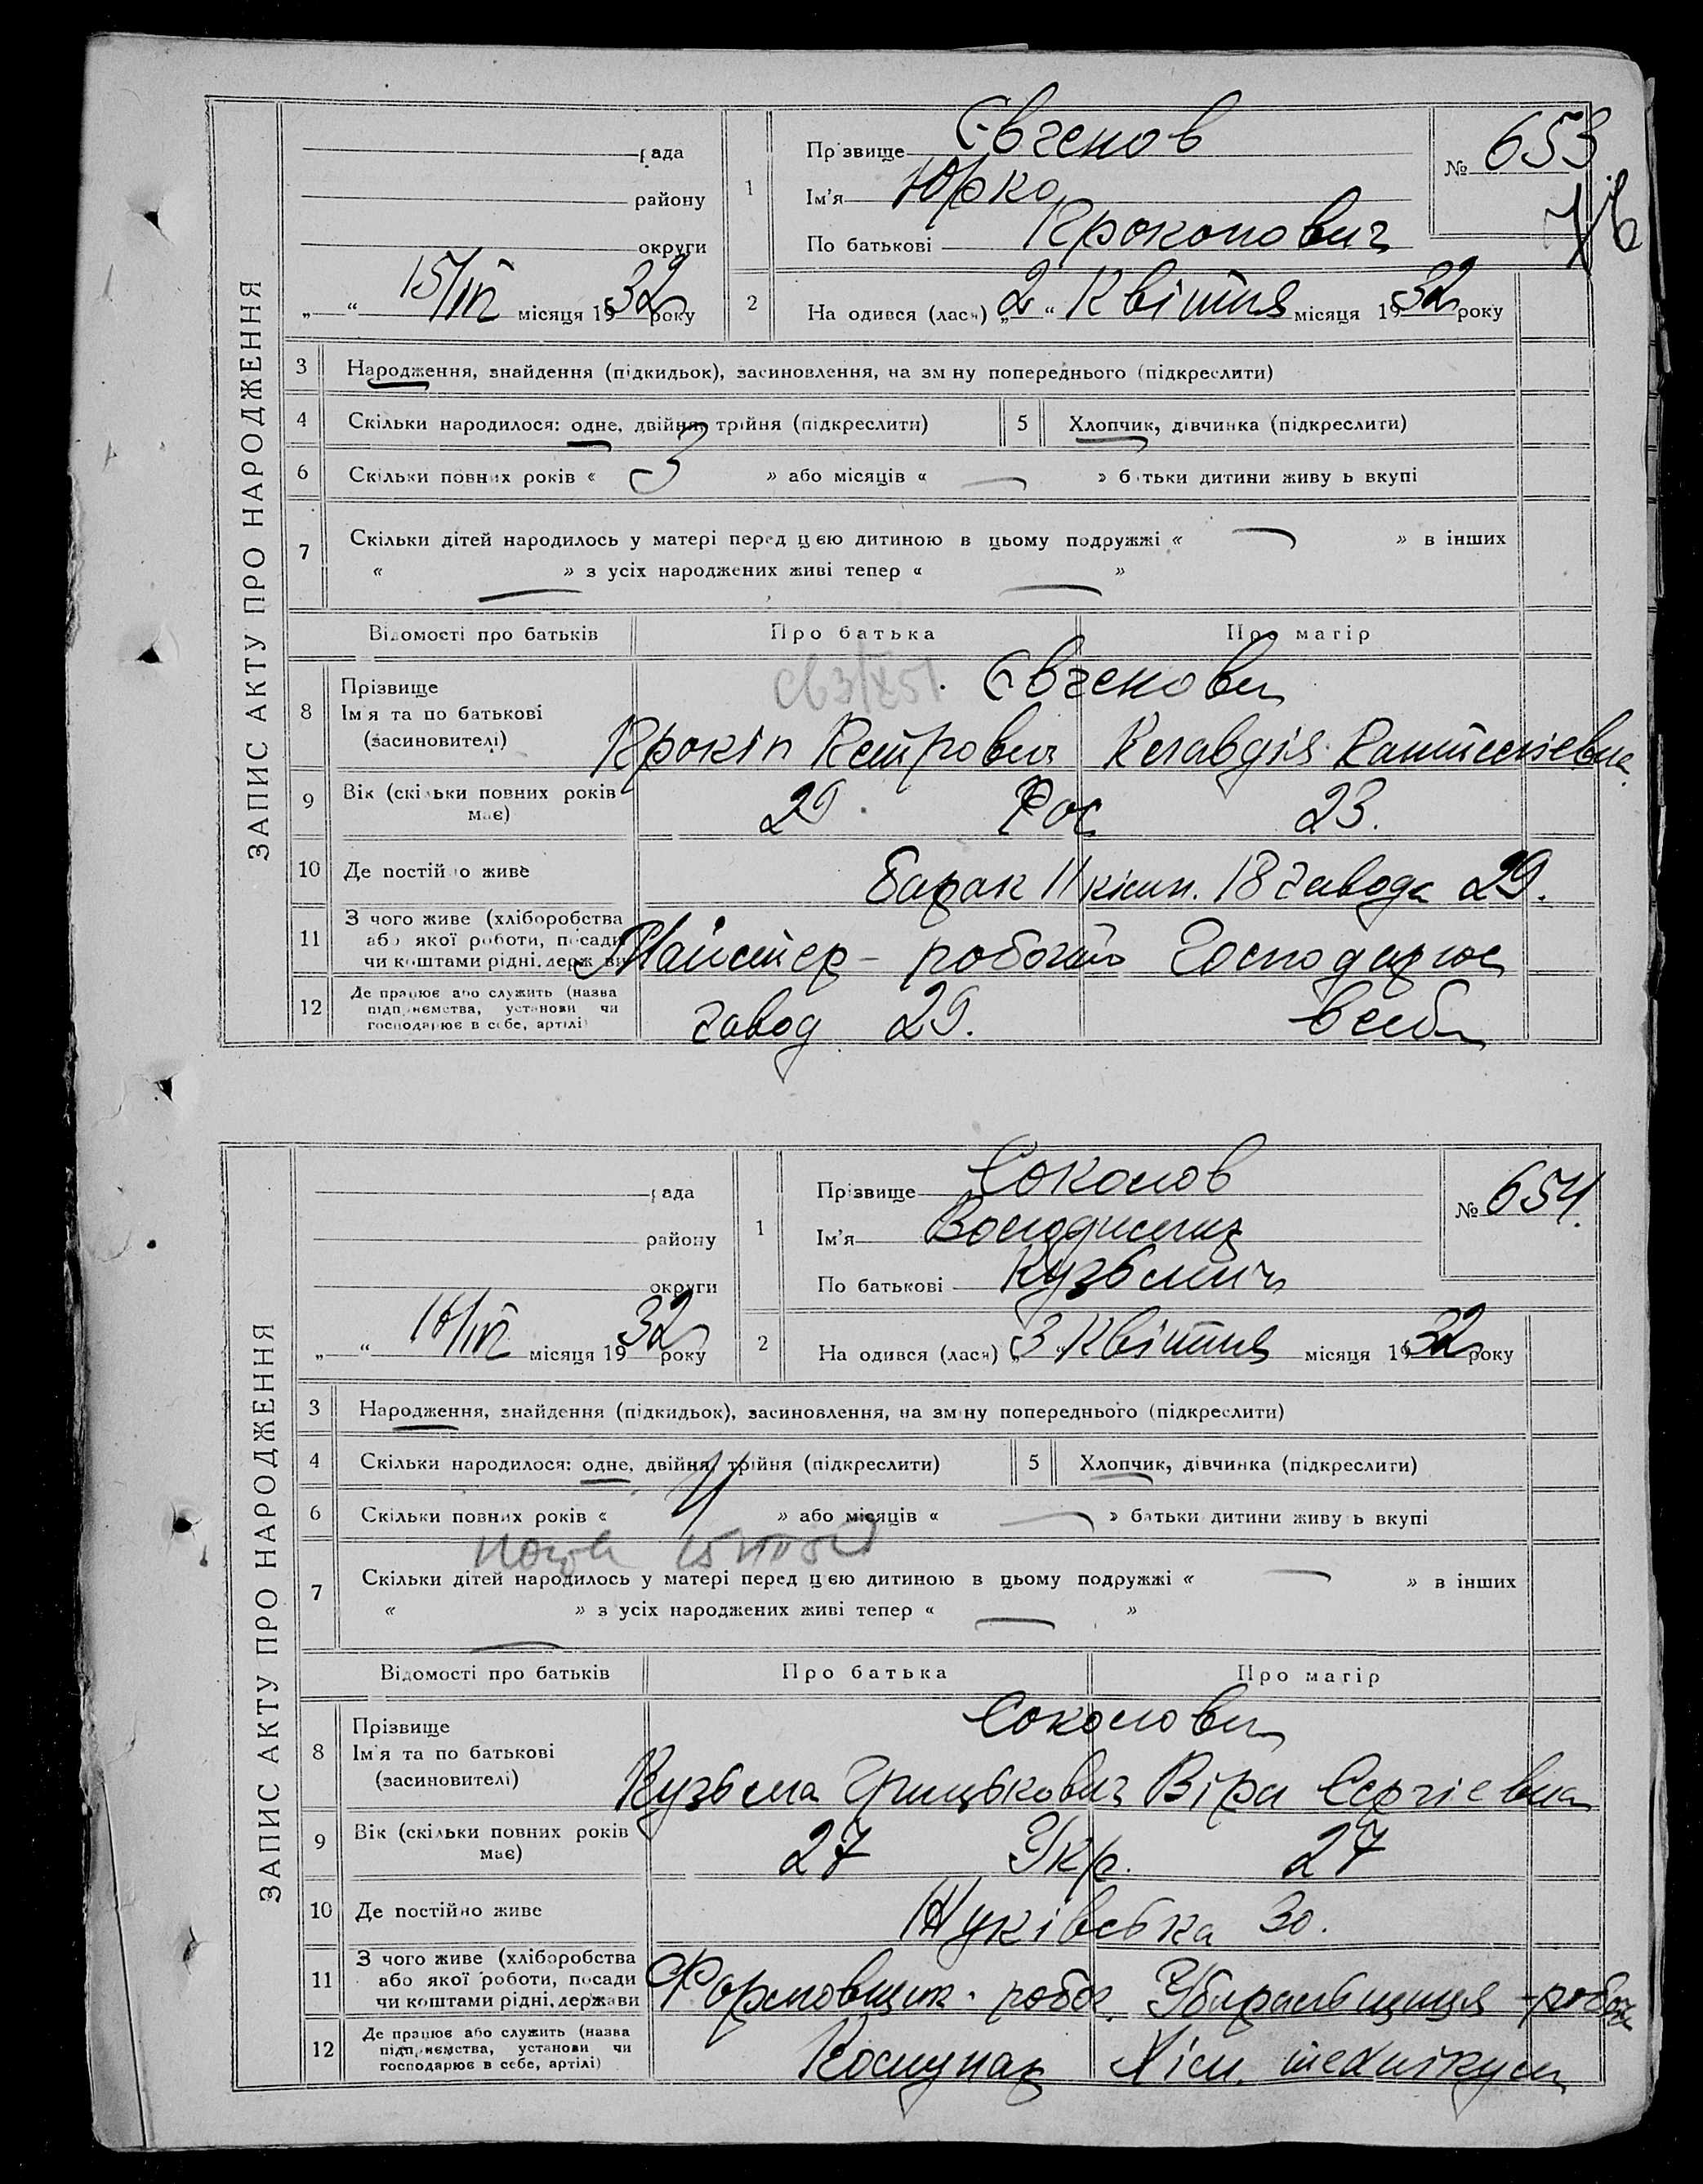 ЗАПИС АКТУ ПРО НАРОДЖЕННЯ
рада
району
округи
„ “ 15/IV місяця 1932 року
1
Прізвище Євченов
Ім'я Юрко
По батькові Прокопович
№ 653
2
На одився (лась) „2“ Квітня місяця 1932 року
3 Народження, знайдення (підкидьок), засиновлення, на зм ну попереднього (підкреслити)
4 Скільки народилося: одне, двійня, трійня (підкреслити)
5 Хлопчик, дівчинка (підкреслити)
6 Скільки повних років « 3 » або місяців « — » б тьки дитини живу ь вкупі
7 Скільки дітей народилось у матері перед цею дитиною в цьому подружжі « — » в інших
« — » з усіх народжених живі тепер « — »
Відомості про батьків Про батька Про матір
8 Прізвище
Ім'я та по батькові
(засиновителі)
Євченови
Прокіп Петрович Клавдія
9 Вік (скільки повних років
має)
29 Рос 23.
10 Де постійно живе
барак 11 кімн. 18 завода 29.
11 З чого живе (хліборобства
або якої роботи, посади
чи коштами рідні, держ ви
Майстер - робочий Господарює
12 Де працює або служить (назва
підприємства, установи чи
господарює в себе, артілі)
завод 29. в себе
ЗАПИС АКТУ ПРО НАРОДЖЕННЯ
рада
району
округи
„ “ 16/IV місяця 1932 року
1
Прізвище Соколов
Ім'я Володимир
По батькові Кузьмич
№ 654.
2
На одився (лась) „3“ Квітня місяця 1932 року
3 Народження, знайдення (підкидьок), засиновлення, на зм ну попереднього (підкреслити)
4 Скільки народилося: одне, двійня, трійня (підкреслити)
5 Хлопчик, дівчинка (підкреслити)
6 Скільки повних років « 4 » або місяців « — » батьки дитини живу ь вкупі
7 Скільки дітей народилось у матері перед цею дитиною в цьому подружжі « — » в інших
« — » з усіх народжених живі тепер « — »
Відомості про батьків Про батька Про матір
8 Прізвище
Ім'я та по батькові
(засиновителі)
Соколови
Кузьма Грицькович Віра Сергієвна
9 Вік (скільки повних років
має)
27 Укр. 27
10 Де постійно живе
Жуківська 30.
11 З чого живе (хліборобства
або якої роботи, посади
чи коштами рідні, держави
Формовщик - робоч. Убиральщиця - робоч
12 Де працює або служить (назва
підприємства, установи чи
господарює в себе, артілі)
Комунар Хім. технікум